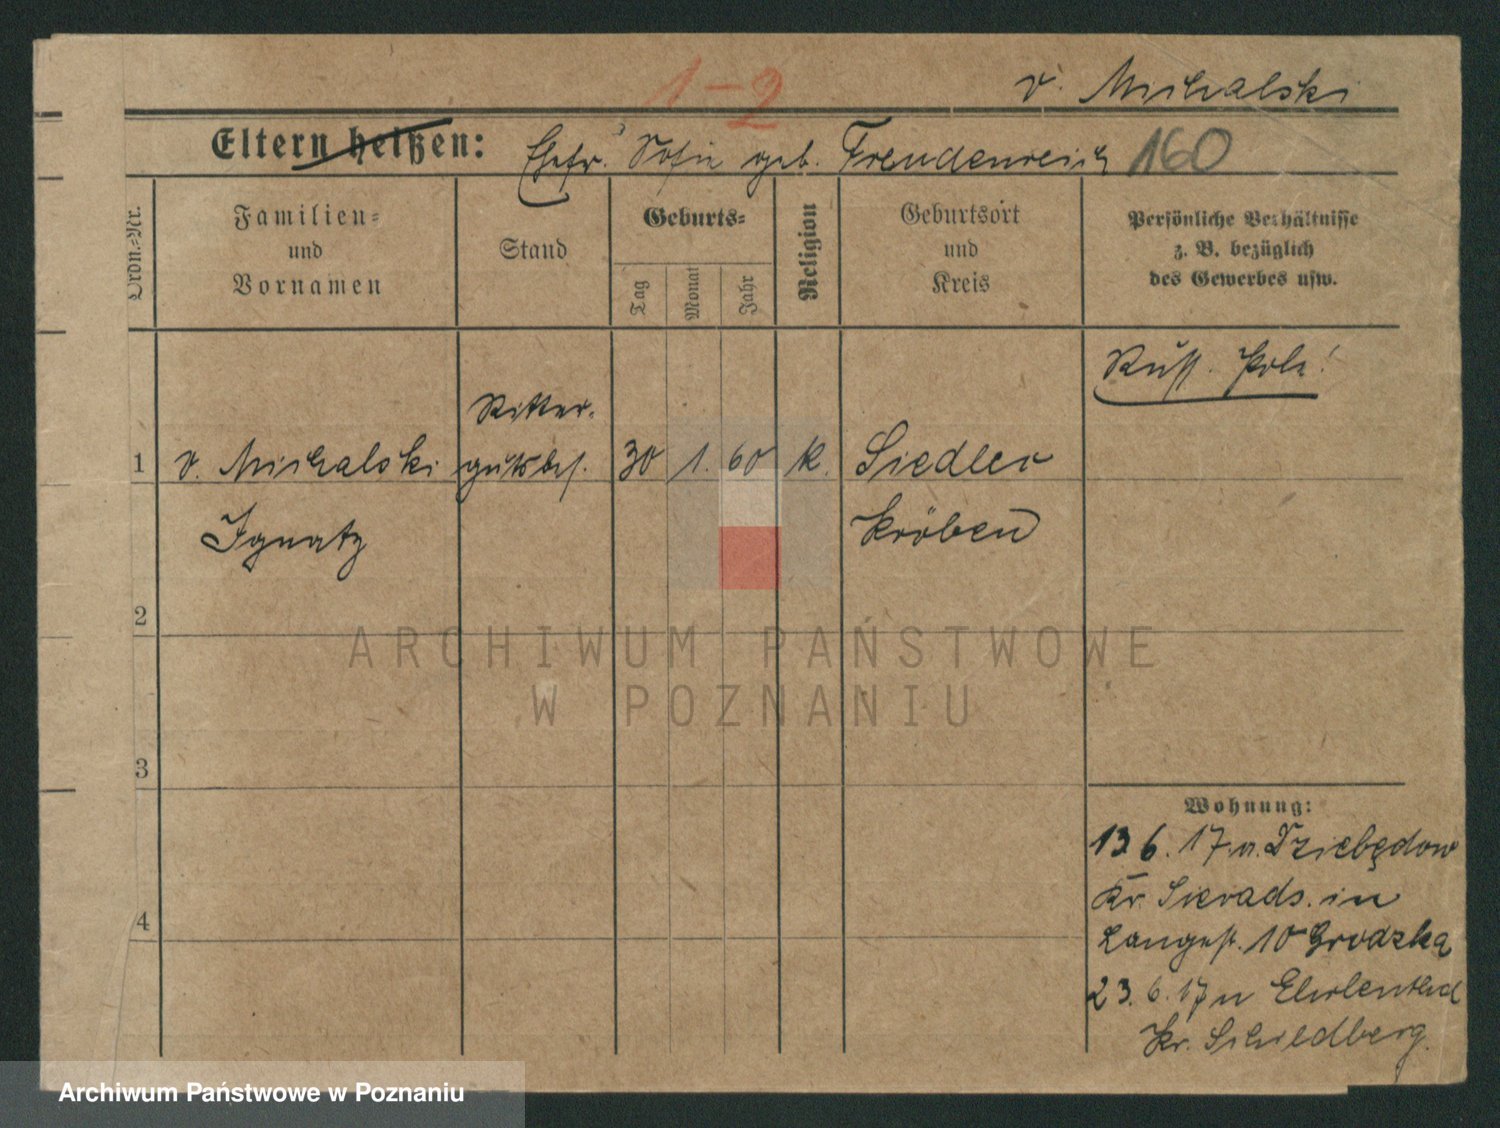 1-2
v. Michalski
Eltern heißen: Ehefr. Sofie geb. Freudenreich 160
Ordn.-Nr.
Familien-
und
Vornamen
Stand
Geburts-
Tag
Monat
Jahr
Religion
Geburtsort
und
Kreis
Persönliche Verhältnisse
z. B. bezüglich
des Gewerbes usw.
Russ. Pole!
Ritter-
1 v. Michalski gutsbes. 30 1. 60 k. Siedlec
Ignatz Kröben
2
ARCHIWUM PAŃSTWOWE
W POZNANIU
3
Wohnung:
13 6. 17 v. Dziebędow
Kr. Sieradz. in
Langestr. 10 Grodzka
23. 6. 17 n
Kr. Schildberg.
4
Archiwum Państwowe w Poznaniu